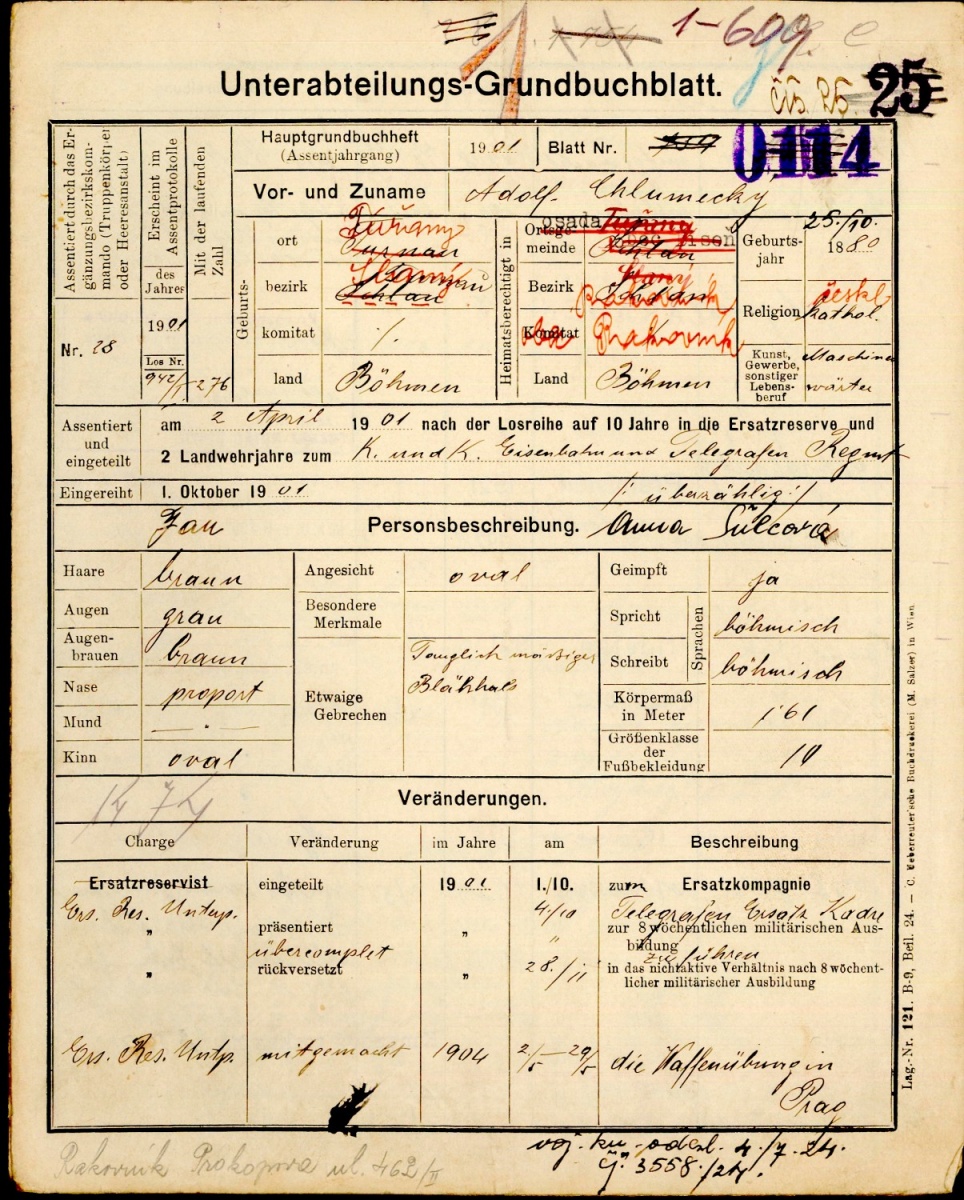 1-609
Unterabteilungs-Grundbuchblatt.
čís. 25. 25
Assentiert durch das Er-
gänzungsbezirkskom-
mando (Truppenkörper
oder Heeresanstalt)
Nr. 28
Erscheint im
Assentprotokolle
des
Jahres
1901
Los Nr.
942/1
Mit der laufenden
Zahl
276
Hauptgrundbuchheft
(Assentjahrgang)
1901
Blatt Nr.
0114
Vor- und Zuname Adolf Chlumecky
Geburts-
ort Tuřany
Turnau
bezirk Slaný
Schlan
komitat ./.
land Böhmen
Heimatsberechtigt in
Ortsge-
meinde osada Tuřany
Schlan
Bezirk Slaný
Rakovník
Komitat obec Rakovník
Land Böhmen
Geburts-
jahr 25./10.
1880
Religion českl.
kathol.
Kunst,
Gewerbe,
sonstiger
Lebens-
beruf
Maschinen
wärter
Assentiert
und
eingeteilt
am 2 April 1901 nach der Losreihe auf 10 Jahre in die Ersatzreserve und
2 Landwehrjahre zum K. und K. Eisenbahn und Telegrafen Regmt
Eingereiht 1. Oktober 1901 /: überzählig :/
Jan Personsbeschreibung. Anna Šulcová
Haare braun
Augen grau
Augen-
brauen braun
Nase proport
Mund "
Kinn oval
Angesicht oval
Besondere
Merkmale
Etwaige
Gebrechen
Tauglich mässiger
Blähhals
Geimpft ja
Sprachen
Spricht böhmisch
Schreibt böhmisch
Körpermaß
in Meter 1·61
Größenklasse
der
Fußbekleidung 10
Veränderungen.
Charge Veränderung im Jahre am Beschreibung
Ersatzreservist eingeteilt 1901 1./10. zum Ersatzkompagnie
Ers. Res. Untp. 4./10 Telegrafen Ersatz Kadre
" präsentiert " " zur 8 wöchentlichen militärischen Aus-
bildung
übercomplet zu führen
" rückversetzt " 28./11 in das nichtaktive Verhältnis nach 8 wöchent-
licher militärischer Ausbildung
Ers. Res. Untp. mitgemacht 1904 2./5 – 29/5 die Waffenübung in
Prag
Rakovník Prokopova ul. 462/II
voj. kn. odesl. 4./7. 24.
čj. 3558./24.
Lag.-Nr. 121. B-9, Beil. 24. — C. Ueberreuter'sche Buchdruckerei (M. Salzer) in Wien